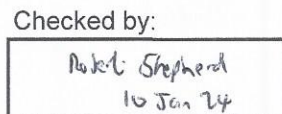 Checked by:
Robert Shepherd
10 Jan 24